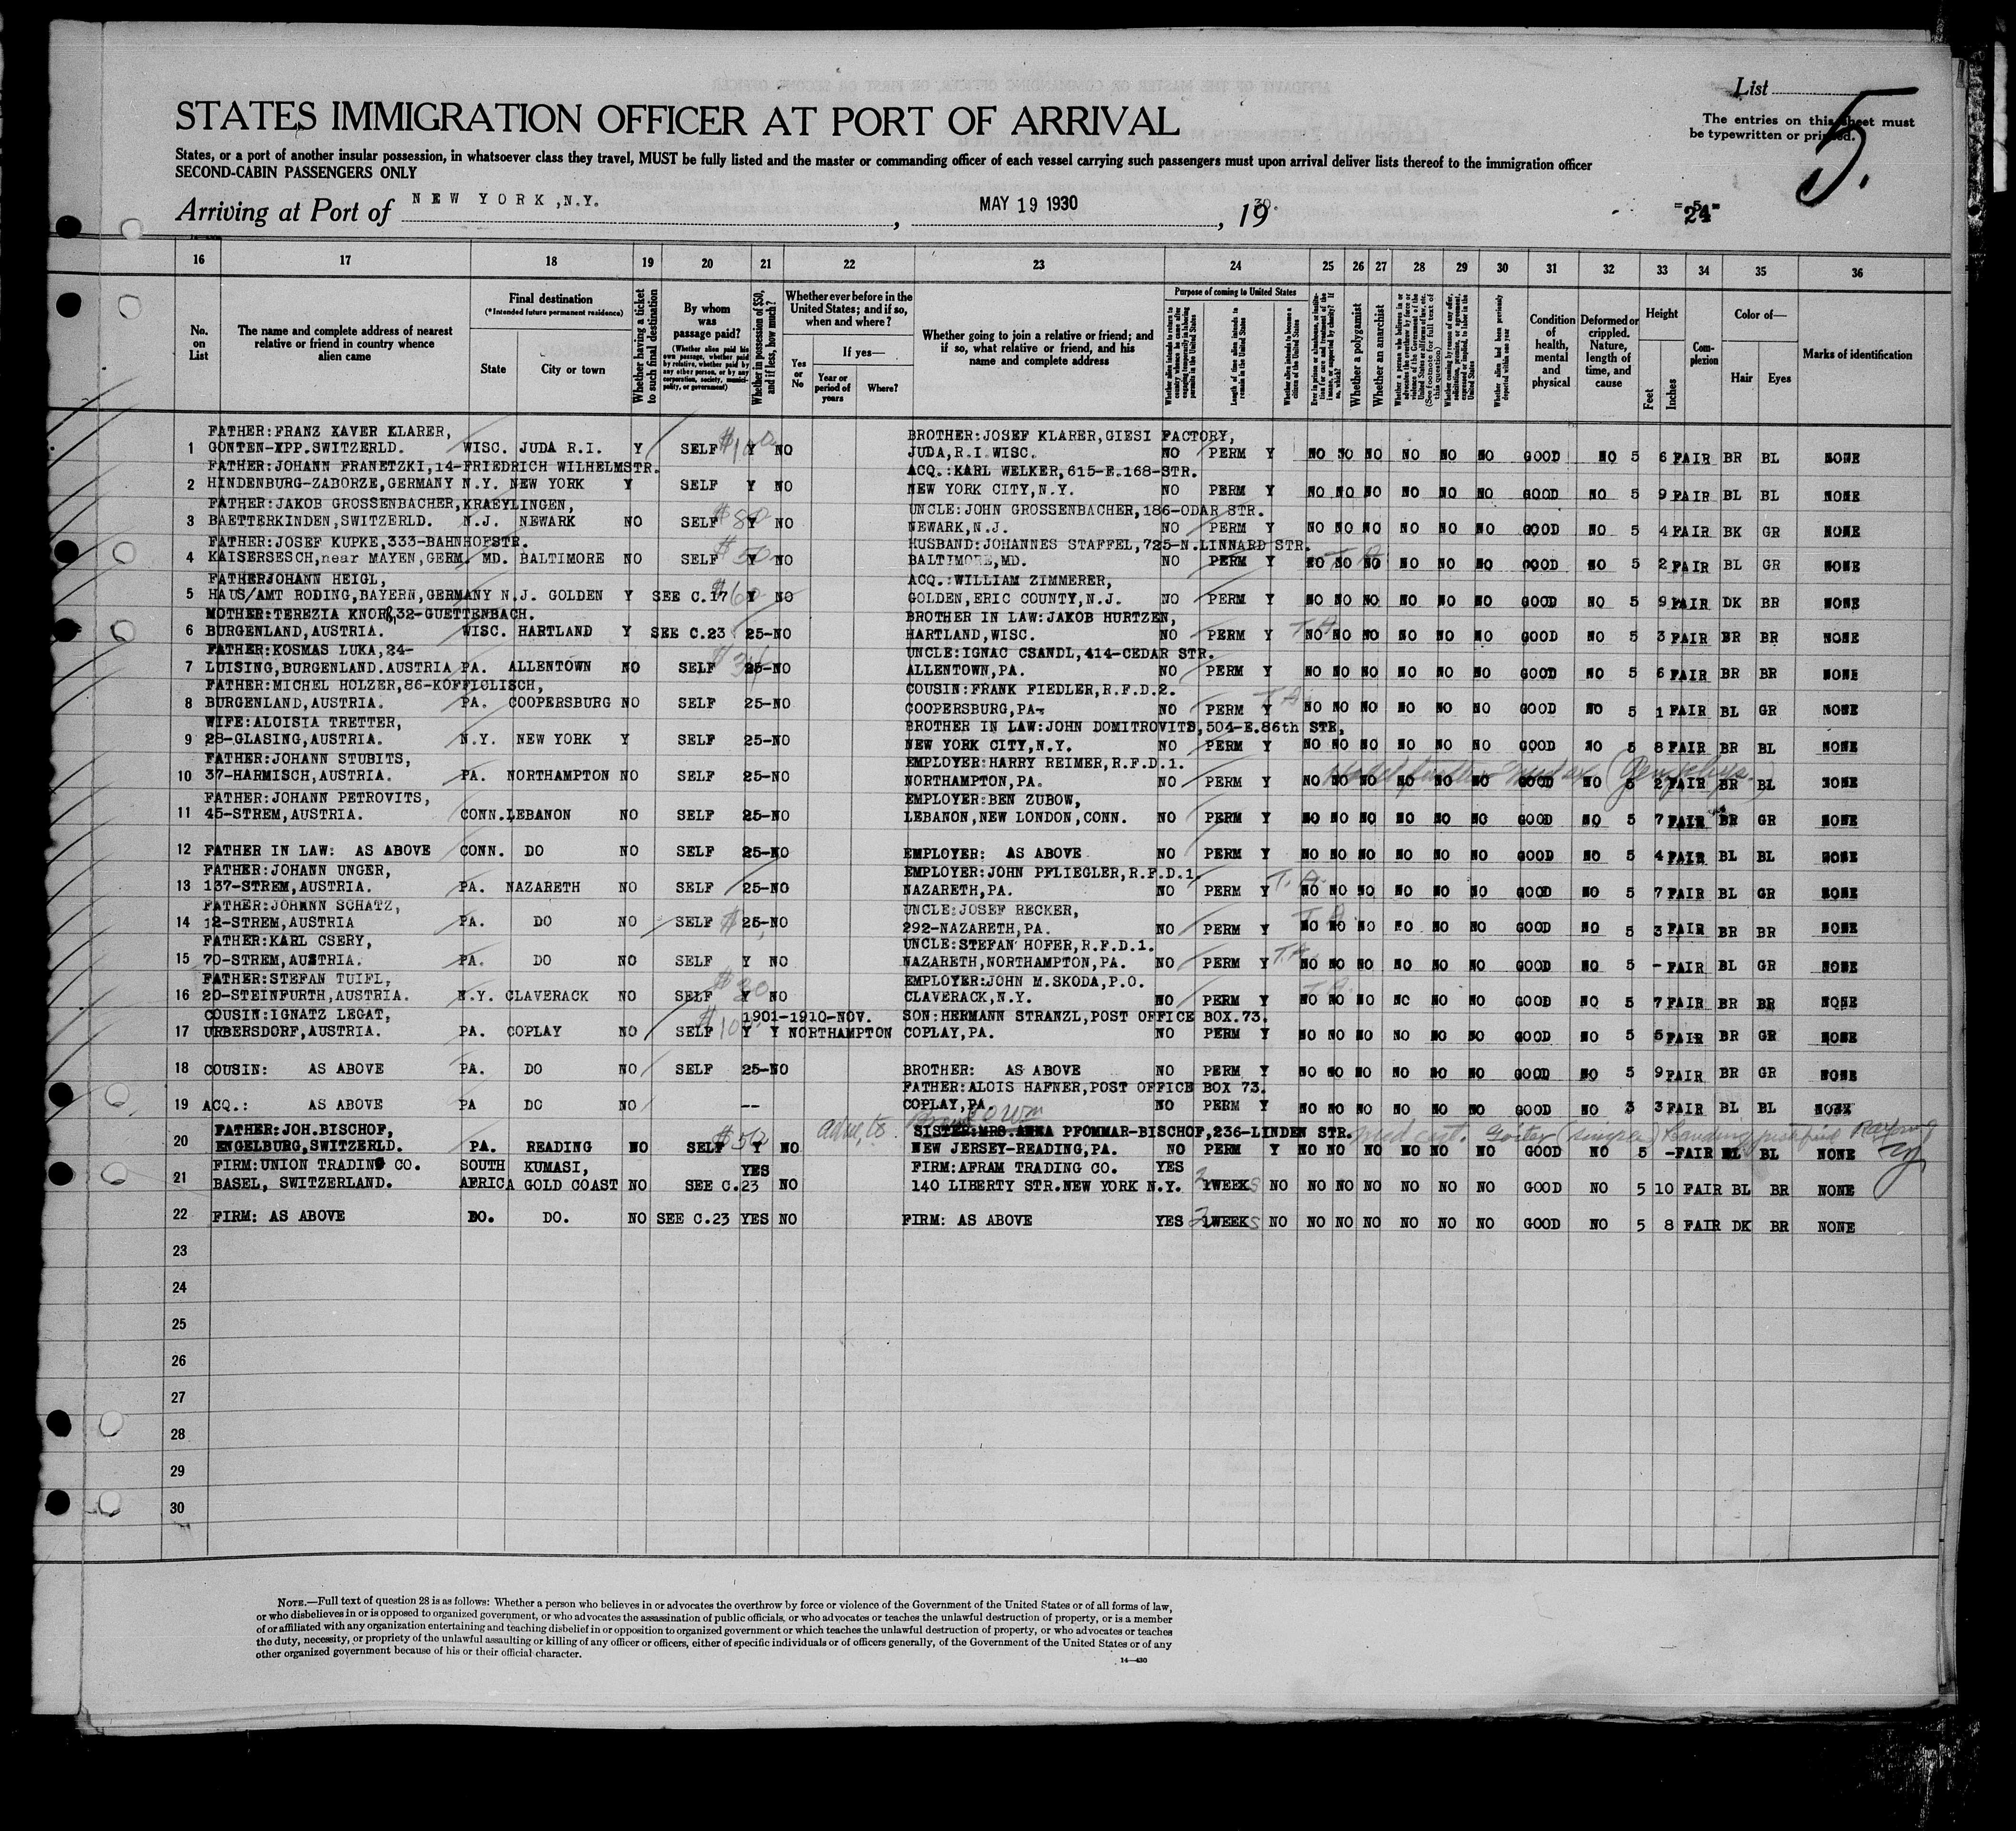 List
The entries on this sheet must
be typewritten or printed.
5.
STATES IMMIGRATION OFFICER AT PORT OF ARRIVAL
States, or a port of another insular possession, in whatsoever class they travel, MUST be fully listed and the master or commanding officer of each vessel carrying such passengers must upon arrival deliver lists thereof to the immigration officer
SECOND-CABIN PASSENGERS ONLY
Arriving at Port of NEW YORK, N.Y. , MAY 19 1930 , 19 30.
16 17 18 19 20 21 22 23 24 25 26 27 28 29 30 31 32 33 34 35 36
No. on List
The name and complete address of nearest relative or friend in country whence alien came
Final destination
(*Intended future permanent residence)
State
City or town
Whether having a ticket to such final destination
By whom was passage paid?
(Whether alien paid his own passage, whether paid by relative, whether paid by any other person, or by any corporation, society, municipality, or government)
Whether in possession of $50, and if less, how much?
Whether ever before in the United States; and if so, when and where?
Yes or No
If yes—
Year or period of years
Where?
Whether going to join a relative or friend; and if so, what relative or friend, and his name and complete address
Purpose of coming to United States
Length of time alien intends to remain in the United States
Whether alien intends to become a citizen of the United States
Whether a polygamist
Whether an anarchist
Condition of health, mental and physical
Deformed or crippled. Nature, length of time, and cause
Height
Feet
Inches
Complexion
Color of—
Hair
Eyes
Marks of identification
FATHER:FRANZ XAVER KLARER, BROTHER:JOSEF KLARER,GIESI FACTORY,
1 GONTEN-APP.SWITZERLD. WISC. JUDA R.I. Y SELF Y NO JUDA,R.I.WISC. NO PERM Y NO NO NO NO NO NO GOOD NO 5 6 FAIR BR BL NONE
FATHER:JOHANN FRANETZKI,14-FRIEDRICH WILHELMSTR. ACQ.:KARL WELKER,615-E.168-STR.
2 HINDENBURG-ZABORZE,GERMANY N.Y. NEW YORK Y SELF Y NO NEW YORK CITY,N.Y. NO PERM Y NO NO NO NO NO NO GOOD NO 5 9 FAIR BL BL NONE
FATHER:JAKOB GROSSENBACHER,KRAEYLINGEN, UNCLE:JOHN GROSSENBACHER,186-ODAR STR.
3 BAETTERKINDEN,SWITZERLD. N.J. NEWARK NO SELF Y NO NEWARK,N.J. NO PERM Y NO NO NO NO NO NO GOOD NO 5 4 FAIR BK GR NONE
FATHER:JOSEF KUPKE,333-BAHNHOFSTR. HUSBAND:JOHANNES STAFFEL,725-N.LINNARD STR.
4 KAISERSESCH,near MAYEN,GERM. MD. BALTIMORE NO SELF $50 Y NO BALTIMORE,MD. NO PERM Y NO NO NO NO NO NO GOOD NO 5 2 FAIR BL GR NONE
FATHERJOHANN HEIGL, ACQ.:WILLIAM ZIMMERER,
5 HAUS/AMT RODING,BAYERN,GERMANY N.J. GOLDEN Y SEE C.17 $60 Y NO GOLDEN,ERIC COUNTY,N.J. NO PERM Y NO NO NO NO NO NO GOOD NO 5 9 FAIR DK BR NONE
MOTHER:TEREZIA KNOR,32-GUETTENBACH. BROTHER IN LAW:JAKOB HURTZEN,
6 BURGENLAND,AUSTRIA. WISC. HARTLAND Y SEE C.23 25-NO HARTLAND,WISC. NO PERM Y T.A. NO NO NO NO NO NO GOOD NO 5 3 FAIR BR BR NONE
FATHER:KOSMAS LUKA,24- UNCLE:IGNAC CSANDL,414-CEDAR STR.
7 LUISING,BURGENLAND.AUSTRIA PA. ALLENTOWN NO SELF 25-NO ALLENTOWN,PA. NO PERM Y NO NO NO NO NO NO GOOD NO 5 6 FAIR BR BR NONE
FATHER:MICHEL HOLZER,86-KOFFIOLISCH, COUSIN:FRANK FIEDLER,R.F.D.2.
8 BURGENLAND,AUSTRIA. PA. COOPERSBURG NO SELF 25-NO COOPERSBURG,PA- NO PERM Y T.A. NO NO NO NO NO NO GOOD NO 5 1 FAIR BL GR NONE
WIFE:ALOISIA TRETTER, BROTHER IN LAW:JOHN DOMITROVITS,504-E.86th STR,
9 28-GLASING,AUSTRIA. N.Y. NEW YORK Y SELF 25-NO NEW YORK CITY,N.Y. NO PERM Y NO NO NO NO NO NO GOOD NO 5 8 FAIR BR BL NONE
FATHER:JOHANN STUBITS, EMPLOYER:HARRY REIMER,R.F.D.1.
10 37-HARMISCH,AUSTRIA. PA. NORTHAMPTON NO SELF 25-NO NORTHAMPTON,PA. NO PERM Y NO NO NO NO NO NO GOOD NO 5 2 FAIR BR BL NONE
FATHER:JOHANN PETROVITS, EMPLOYER:BEN ZUBOW,
11 45-STREM,AUSTRIA. CONN. LEBANON NO SELF 25-NO LEBANON,NEW LONDON,CONN. NO PERM Y NO NO NO NO NO NO GOOD NO 5 7 FAIR BR GR NONE
12 FATHER IN LAW: AS ABOVE CONN. DO NO SELF 25-NO EMPLOYER: AS ABOVE NO PERM Y NO NO NO NO NO NO GOOD NO 5 4 FAIR BL BL NONE
FATHER:JOHANN UNGER, EMPLOYER:JOHN PFLIEGLER,R.F.D.1.
13 137-STREM,AUSTRIA. PA. NAZARETH NO SELF 25-NO NAZARETH,PA. NO PERM Y T.A. NO NO NO NO NO NO GOOD NO 5 7 FAIR BL GR NONE
FATHER:JOHANN SCHATZ, UNCLE:JOSEF RECKER,
14 12-STREM,AUSTRIA PA. DO NO SELF 25-NO 292-NAZARETH,PA. NO PERM Y T.A. NO NO NO NO NO NO GOOD NO 5 3 FAIR BR BR NONE
FATHER:KARL CSERY, UNCLE:STEFAN HOFER,R.F.D.1.
15 70-STREM,AUSTRIA. PA. DO NO SELF Y NO NAZARETH,NORTHAMPTON,PA. NO PERM Y T.A. NO NO NO NO NO NO GOOD NO 5 - FAIR BL GR NONE
FATHER:STEFAN TUIFL, EMPLOYER:JOHN M.SKODA,P.O.
16 20-STEINFURTH,AUSTRIA. N.Y. CLAVERACK NO SELF $30 Y NO CLAVERACK,N.Y. NO PERM Y T.A. NO NO NO NO NO NO GOOD NO 5 7 FAIR BR BR NONE
COUSIN:IGNATZ LEGAT, 1901-1910-NOV. SON:HERMANN STRANZL,POST OFFICE BOX.73.
17 URBERSDORF,AUSTRIA. PA. COPLAY NO SELF Y Y NORTHAMPTON COPLAY,PA. NO PERM Y NO NO NO NO NO NO GOOD NO 5 5 FAIR BR GR NONE
18 COUSIN: AS ABOVE PA. DO NO SELF 25-NO BROTHER: AS ABOVE NO PERM Y NO NO NO NO NO NO GOOD NO 5 9 FAIR BR GR NONE
FATHER:ALOIS HAFNER,POST OFFICE BOX 73.
19 ACQ.: AS ABOVE PA DO NO -- COPLAY,PA. NO PERM Y NO NO NO NO NO NO GOOD NO 3 3 FAIR BL BL NONE
FATHER:JOH.BISCHOF, SISTER:MRS.ANNA PFOMMAR-BISCHOF,236-LINDEN STR.
20 ENGELBURG,SWITZERLD. PA. READING NO SELF $50 Y NO NEW JERSEY-READING,PA. NO PERM Y NO NO NO NO NO NO GOOD NO 5 - FAIR BL BL NONE
FIRM:UNION TRADING CO. SOUTH KUMASI, YES FIRM:AFRAM TRADING CO. YES
21 BASEL, SWITZERLAND. AFRICA GOLD COAST NO SEE C.23 NO 140 LIBERTY STR.NEW YORK N.Y. 2 WEEKS NO NO NO NO NO NO NO GOOD NO 5 10 FAIR BL BR NONE
22 FIRM: AS ABOVE DO. DO. NO SEE C.23 YES NO FIRM: AS ABOVE YES 2 WEEKS NO NO NO NO NO NO NO GOOD NO 5 8 FAIR DK BR NONE
23
24
25
26
27
28
29
30
NOTE.—Full text of question 28 is as follows: Whether a person who believes in or advocates the overthrow by force or violence of the Government of the United States or of all forms of law,
or who disbelieves in or is opposed to organized government, or who advocates the assassination of public officials, or who advocates or teaches the unlawful destruction of property, or is a member
of or affiliated with any organization entertaining and teaching disbelief in or opposition to organized government or which teaches the unlawful destruction of property, or who advocates or teaches
the duty, necessity, or propriety of the unlawful assaulting or killing of any officer or officers, either of specific individuals or of officers generally, of the Government of the United States or of any
other organized government because of his or their official character.
14—430